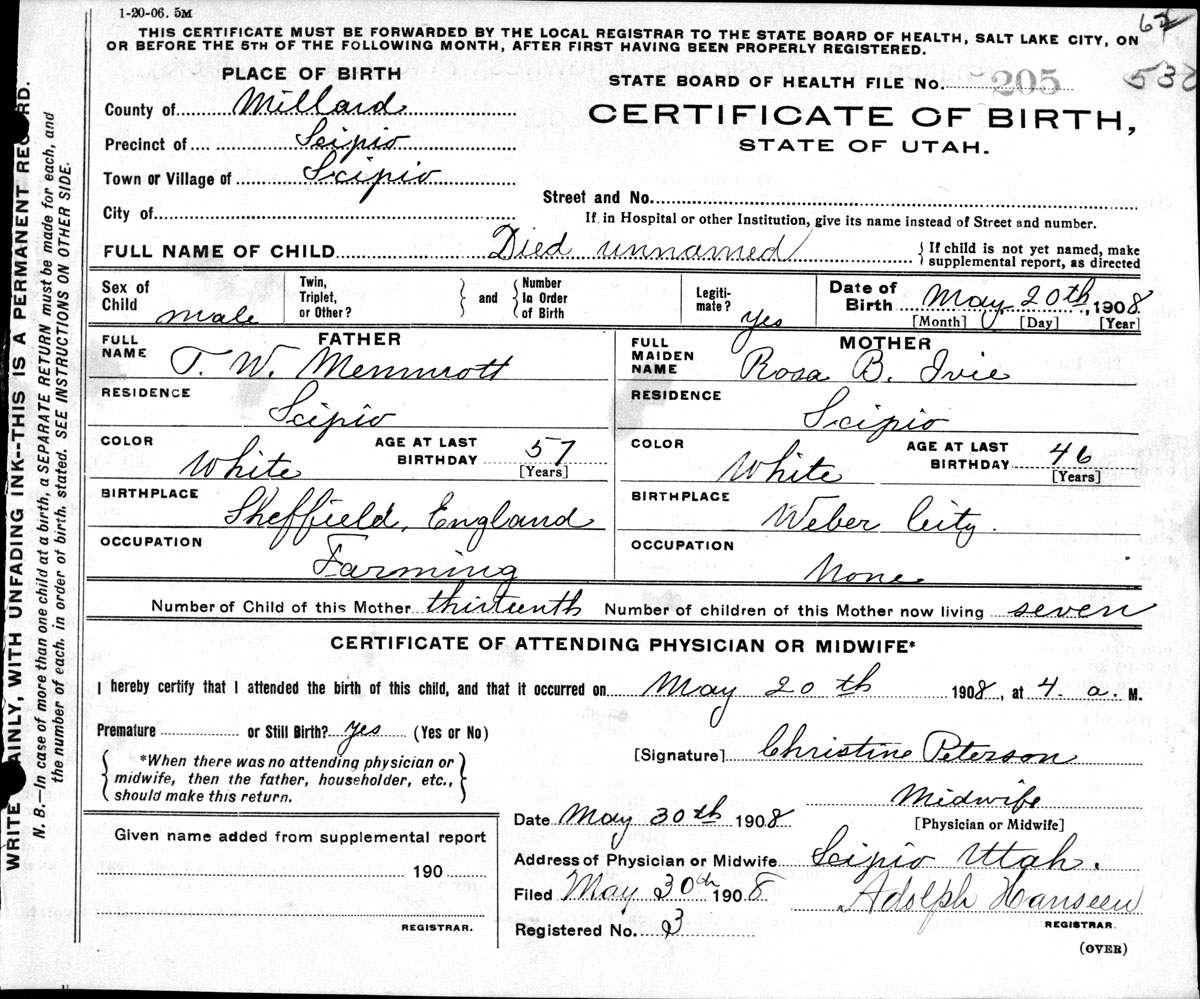 1-20-06. 5M
THIS CERTIFICATE MUST BE FORWARDED BY THE LOCAL REGISTRAR TO THE STATE BOARD OF HEALTH, SALT LAKE CITY, ON
OR BEFORE THE 5TH OF THE FOLLOWING MONTH, AFTER FIRST HAVING BEEN PROPERLY REGISTERED.
PLACE OF BIRTH
County of Millard
Precinct of Scipio
Town or Village of Scipio
City of
STATE BOARD OF HEALTH FILE No. 205
CERTIFICATE OF BIRTH,
STATE OF UTAH.
Street and No.
If in Hospital or other Institution, give its name instead of Street and number.
FULL NAME OF CHILD Died unnamed
If child is not yet named, make
supplemental report, as directed
Sex of
Child male
Twin,
Triplet,
or Other?
and
Number
In Order
of Birth
Legiti-
mate? yes
Date of
Birth May 20th, 1908
[Month] [Day] [Year]
FATHER
FULL
NAME T. W. Memmott
RESIDENCE
Scipio
COLOR
White
AGE AT LAST
BIRTHDAY 57
[Years]
BIRTHPLACE
Sheffield, England
OCCUPATION
Farming
MOTHER
FULL
MAIDEN
NAME Rosa B. Ivie
RESIDENCE
Scipio
COLOR
White
AGE AT LAST
BIRTHDAY 46
[Years]
BIRTHPLACE
Weber City.
OCCUPATION
None
Number of Child of this Mother thirteenth Number of children of this Mother now living seven
CERTIFICATE OF ATTENDING PHYSICIAN OR MIDWIFE*
I hereby certify that I attended the birth of this child, and that it occurred on May 20th 1908, at 4. a. M.
Premature or Still Birth? yes (Yes or No)
*When there was no attending physician or
midwife, then the father, householder, etc.,
should make this return.
[Signature] Christine Peterson
Midwife
[Physician or Midwife]
Date May 30th 1908
Address of Physician or Midwife Scipio Utah.
Filed May 30th 1908 Adolph Hanseen
REGISTRAR.
Registered No. 3
(OVER)
Given name added from supplemental report
190
REGISTRAR.
N. B.—In case of more than one child at a birth, a SEPARATE RETURN must be made for each, and
the number of each, in order of birth, stated. SEE INSTRUCTIONS ON OTHER SIDE.
WITH UNFADING INK--THIS IS A PERMANENT